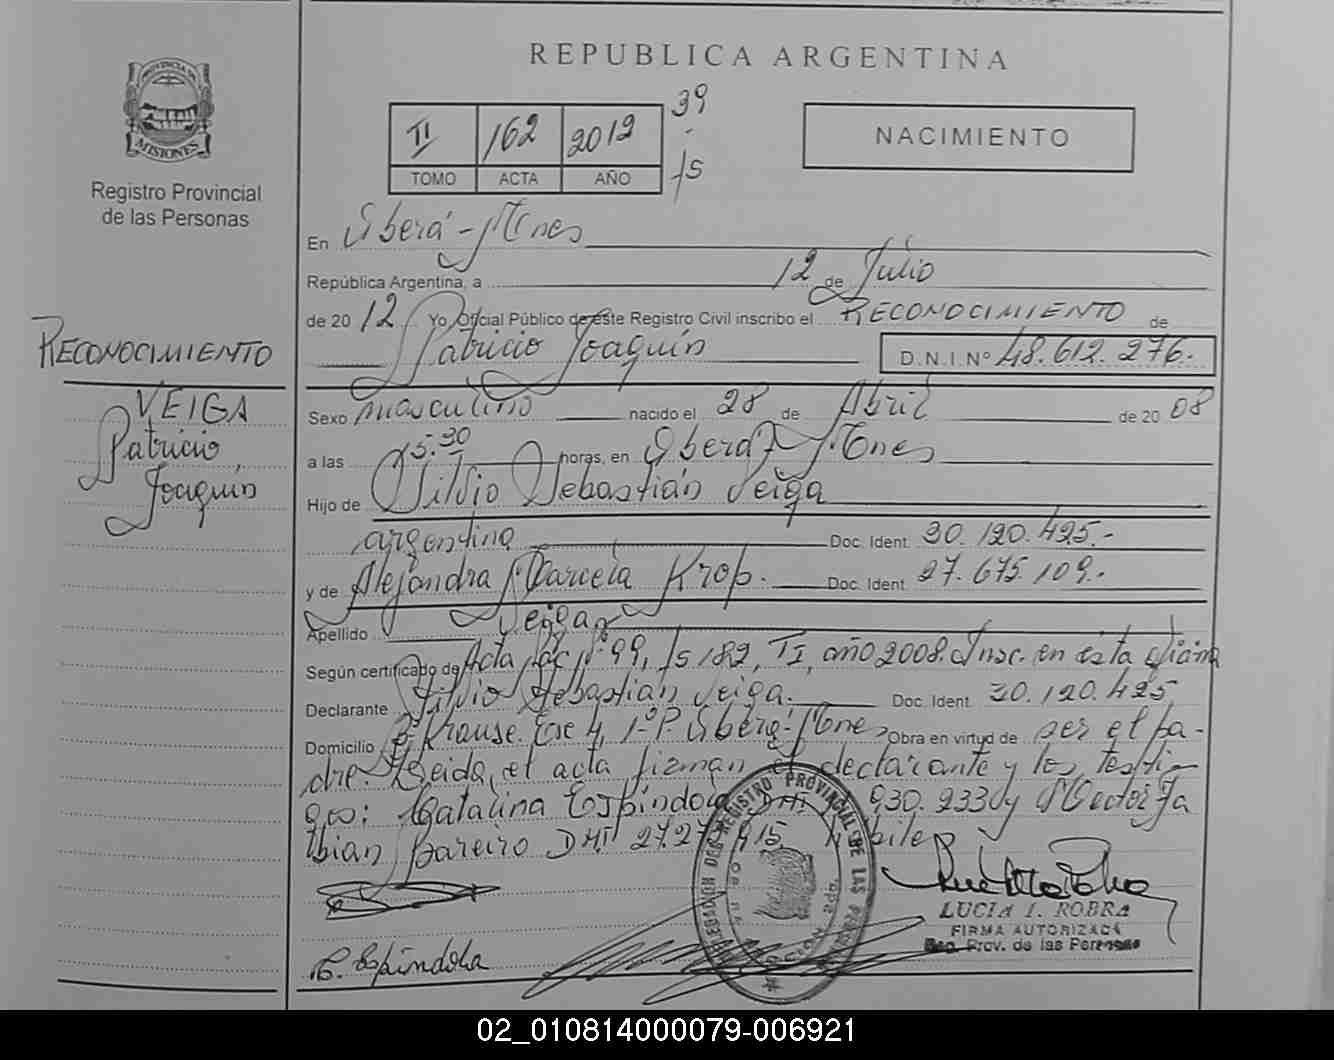 REPUBLICA ARGENTINA
PROVINCIA DE
MISIONES
Registro Provincial
de las Personas
TI 162 2012
TOMO ACTA AÑO
39
15
NACIMIENTO
En Oberá - Mnes
República Argentina, a 12 de Julio
de 2012 Yo Oficial Público de este Registro Civil inscribo el RECONOCIMIENTO de
Patricio Joaquín D.N.I. Nº 48.612.276.-
RECONOCIMIENTO
VEIGA
Patricio
Joaquín
Sexo masculino nacido el 28 de Abril de 2008
a las 15.30 horas, en Oberá - Mnes
Hijo de Silvio Sebastián Veiga
argentino Doc. Ident. 30.120.425.-
y de Alejandra Marcela Krop. Doc. Ident. 27.675.109.-
Apellido Veiga
Según certificado de Acta Nº 99, fs 182, TI, año 2008. Insc. en esta oficina
Declarante Silvio Sebastián Veiga. Doc. Ident. 30.120.425
Domicilio Krause. Esc 4, 1º P. Oberá - Mnes Obra en virtud de ser el pa-
dre. Leida el acta firman el declarante y los testi-
gos: Catalina Espíndola DNI 930.233 y Hector Fa
bian Bareiro DNI 27.27 915
DELEGACION DEL REGISTRO PROVINCIAL DE LAS PERSONAS
LUCIA I. ROBRA
FIRMA AUTORIZADA
Reg. Prov. de las Personas
C. Espíndola
02_010814000079-006921